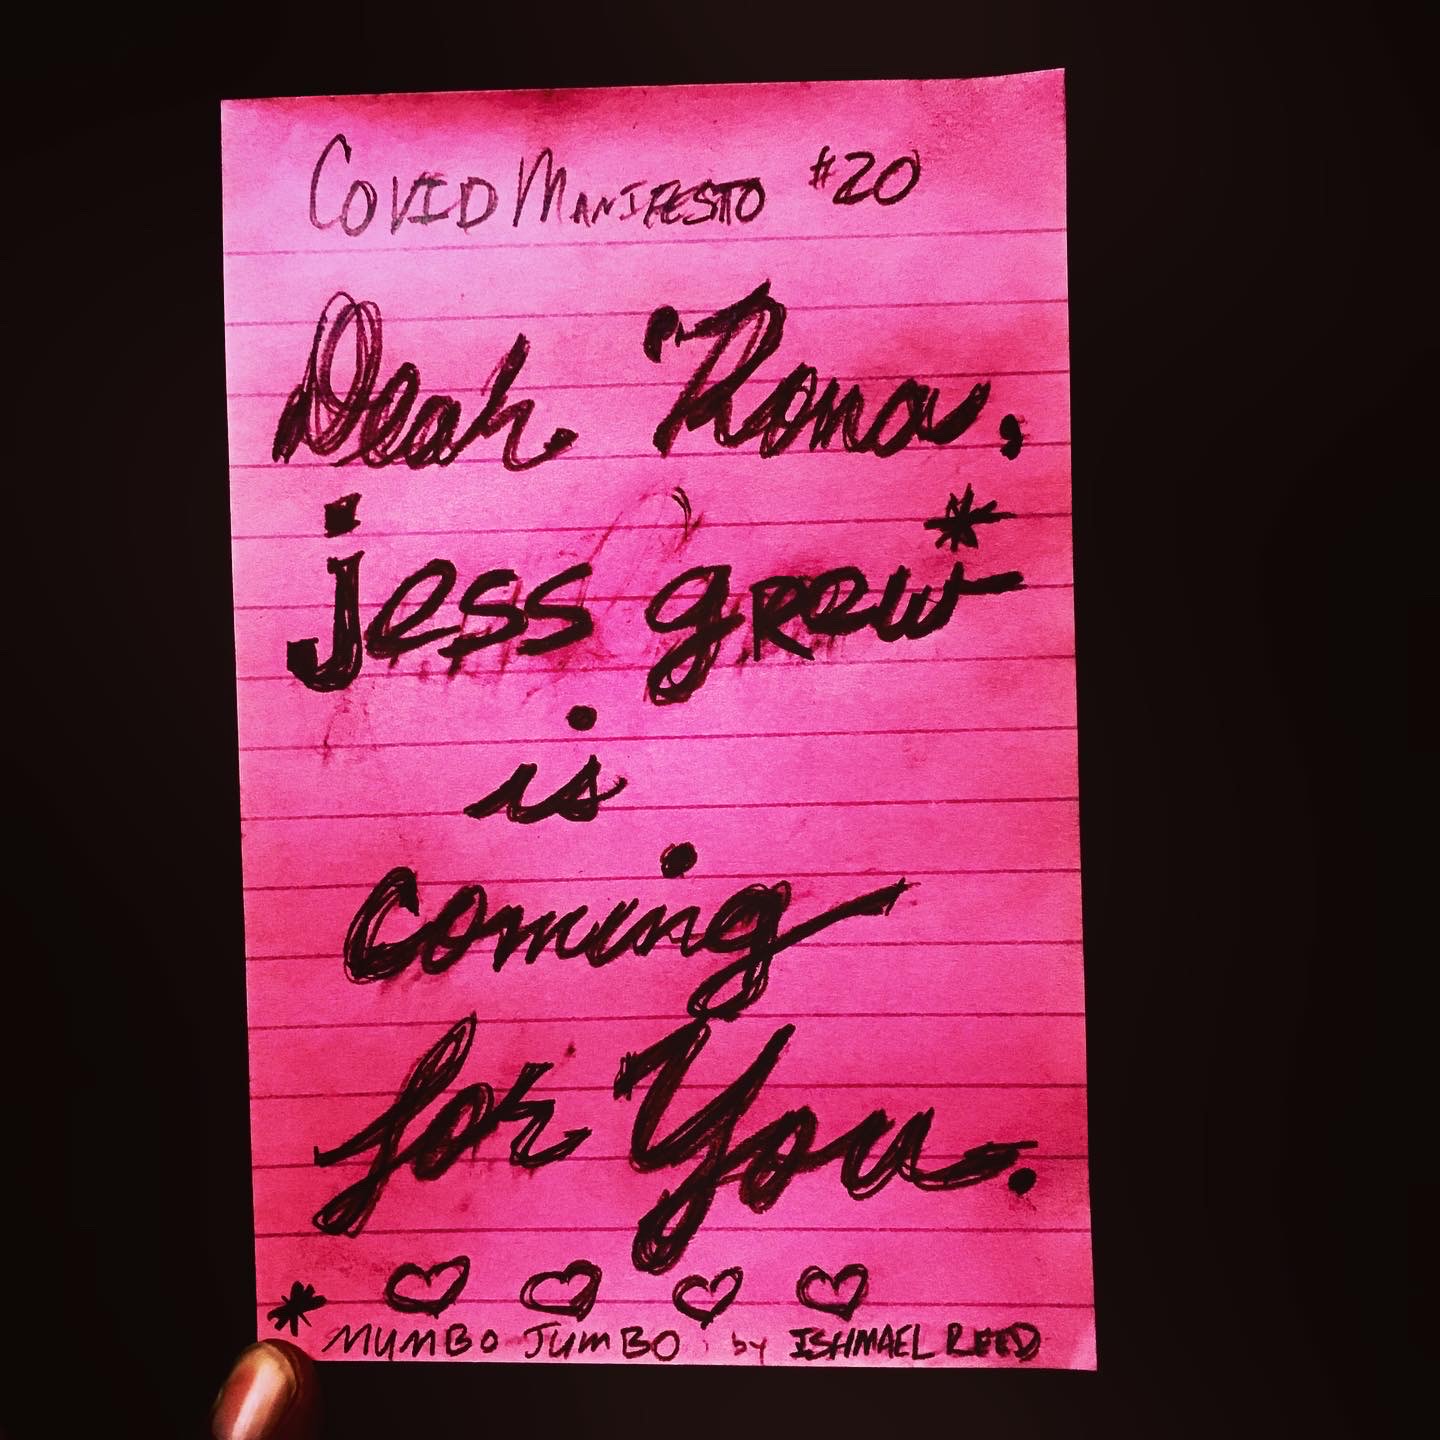 COVID MANIFESTO #20
Dear 'Rona,
jess grew*
is
coming
for You.
* MUMBO JUMBO by ISHMAEL REED